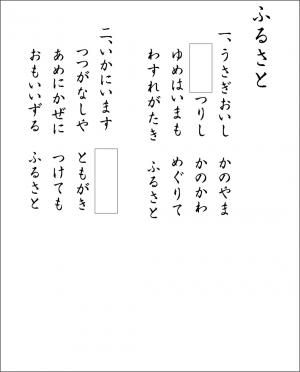 ふるさと
一、うさぎおいし かのやま
つりし かのかわ
ゆめはいまも めぐりて
わすれがたき ふるさと
二、いかにいます
つつがなしや ともがき
あめにかぜに つけても
おもいいずる ふるさと